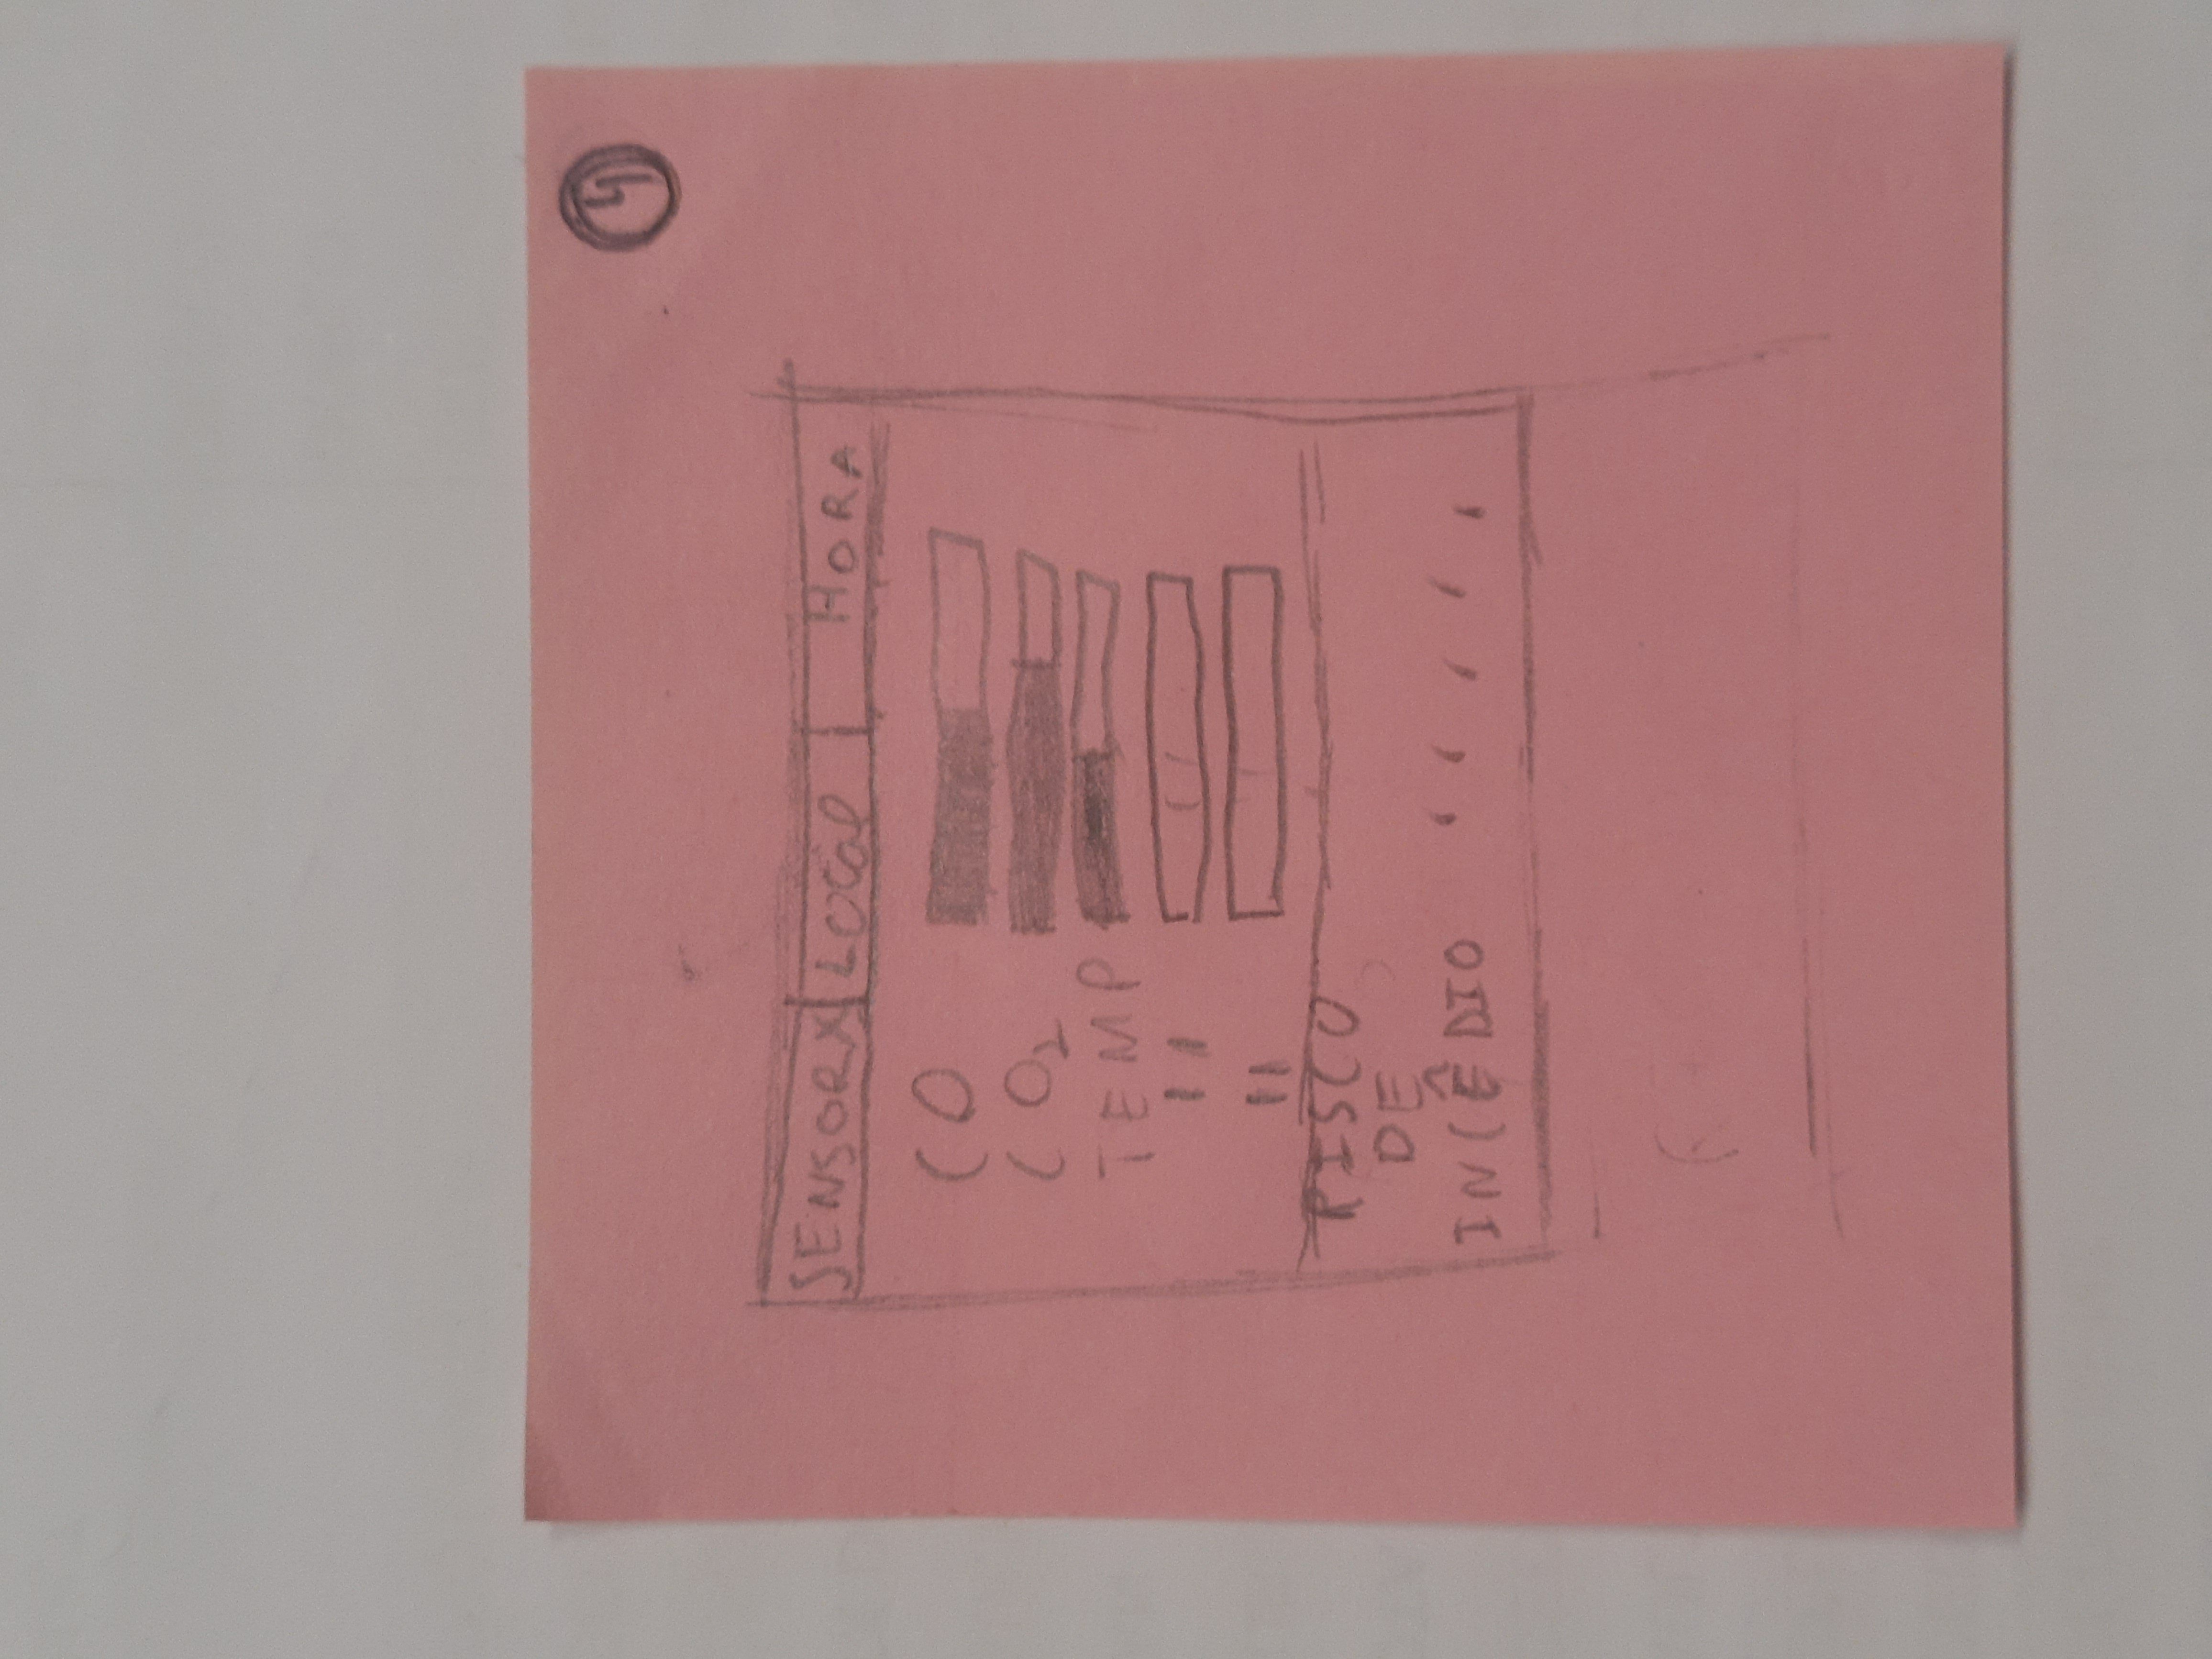 4
SENSOR X LOCAL HORA
CO
CO2
TEMP
"
"
RISCO
DE
INCÊDIO